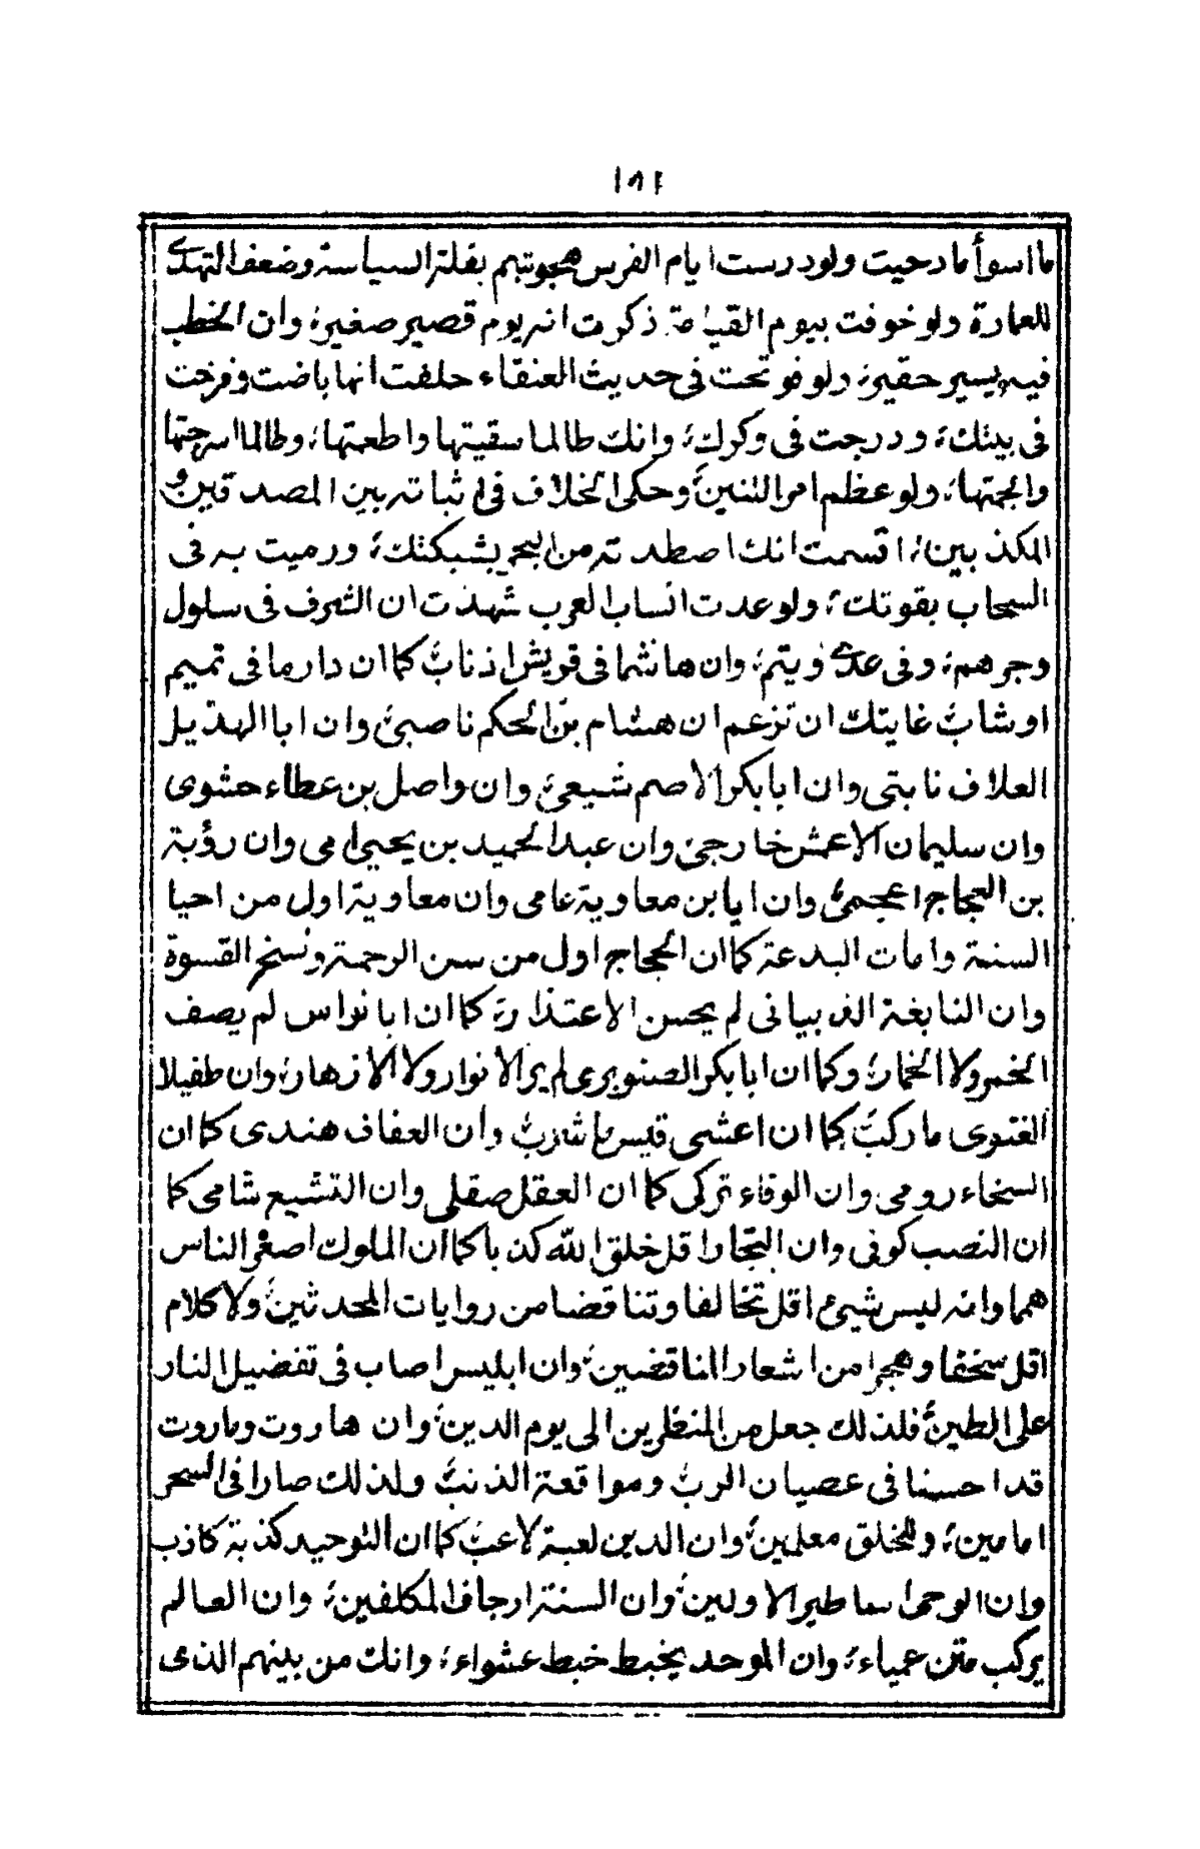 ١٨١
ما اسوأ ما دحيت ولو درست ايام الفرس هجوتهم بقلة السياسة وضعف التهدى
للعمارة ولو خوفت بيوم القيامة ذكرت انه يوم قصير صغير؛ وان الخطب
فيه يسير حقير؛ ولو فوتحت فى حديث العنقاء حلفت انها باضت وفرخت
فى بيتك؛ ودرجت فى وكرك؛ وانك طالما سقيتها واطعمتها؛ وطالما اسرجتها
والجمتها؛ ولو عظم امر التنين؛ وحكى الخلاف فى ثباته بين المصدقين و
المكذبين؛ اقسمت انك اصطدته من البحر بشبكتك؛ ورميت به فى
السحاب بقوتك؛ ولو عدت انساب العرب شهدت ان الشرف فى سلول
وجرهم؛ وفى عدى وتيم؛ وان هاشما فى قريش اذناب كما ان دارما فى تميم
اوشاب غايتك ان تزعم ان هشام بن الحكم ناصبى وان ابا الهذيل
العلاف نابتى وان ابا بكر الاصم شيعى وان واصل بن عطاء حشوى
وان سليمان الاعمش خارجى وان عبد الحميد بن يحيى امى وان رؤبة
بن العجاج اعجمى وان ايا بن معاوية عامى وان معاوية اول من احيا
السنة وامات البدعة كما ان الحجاج اول من سن الرحمة ونسخ القسوة
وان النابغة الذبيانى لم يحسن الاعتذارة كما ان ابا نواس لم يصف
الخمر ولا الخمار؛ وكما ان ابا بكر الصنوبرى لم ير الانوار ولا الازهار؛ وان طفيلا
الغنوى ما ركب كما ان اعشى قيس ما شرب وان العفاف هندى كما ان
السخاء رومى وان الوفاء تركى كما ان العقل صقلى وان التشيع شامى كما
ان النصب كوفى وان التجار اقل خلق الله كذبا كما ان الملوك اصغر الناس
همما وانه ليس شيئ اقل تخالفا وتناقضا من روايات المحدثين ولا كلام
اقل سخفا وهجرا من اشعار المناقضين؛ وان ابليس اصاب فى تفضيل النار
على الطين فلذلك جعل من المنظرين الى يوم الدين؛ وان هاروت وماروت
قد احسنا فى عصيان الرب ومواقعة الذنب ولذلك صارا فى السحر
امامين؛ وللخلق معلمين؛ وان الدين لعبة لاعب كما ان التوحيد كذبة كاذب
وان الوحى اساطير الاولين؛ وان السنة ارجاف المكلفين؛ وان العالم
يركب متن عمياء؛ وان الموحد يخبط خبط عشواء؛ وانك من بينهم الذى